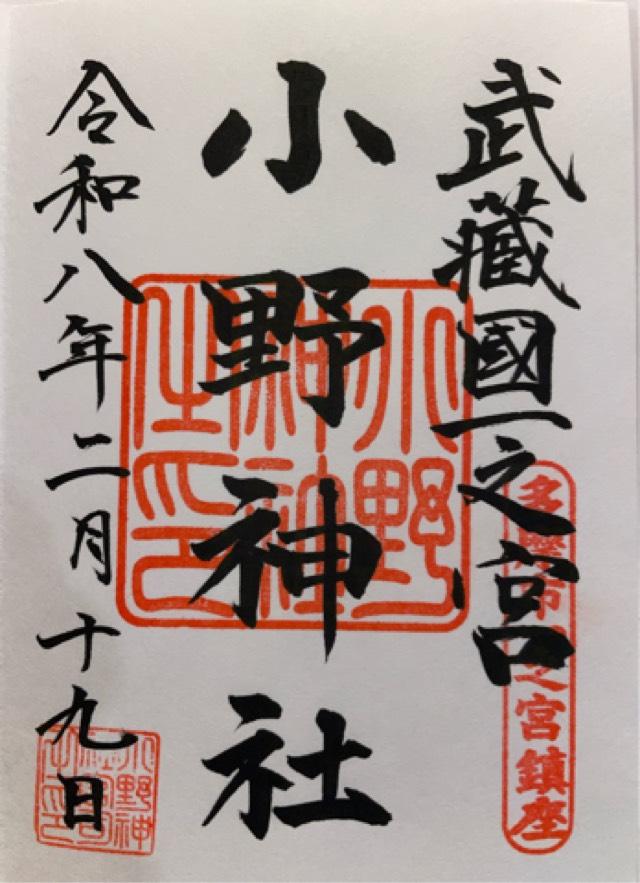 武藏國一之宮
多摩市一之宮鎮座
小野神社
小野神社之印
令和八年二月十九日